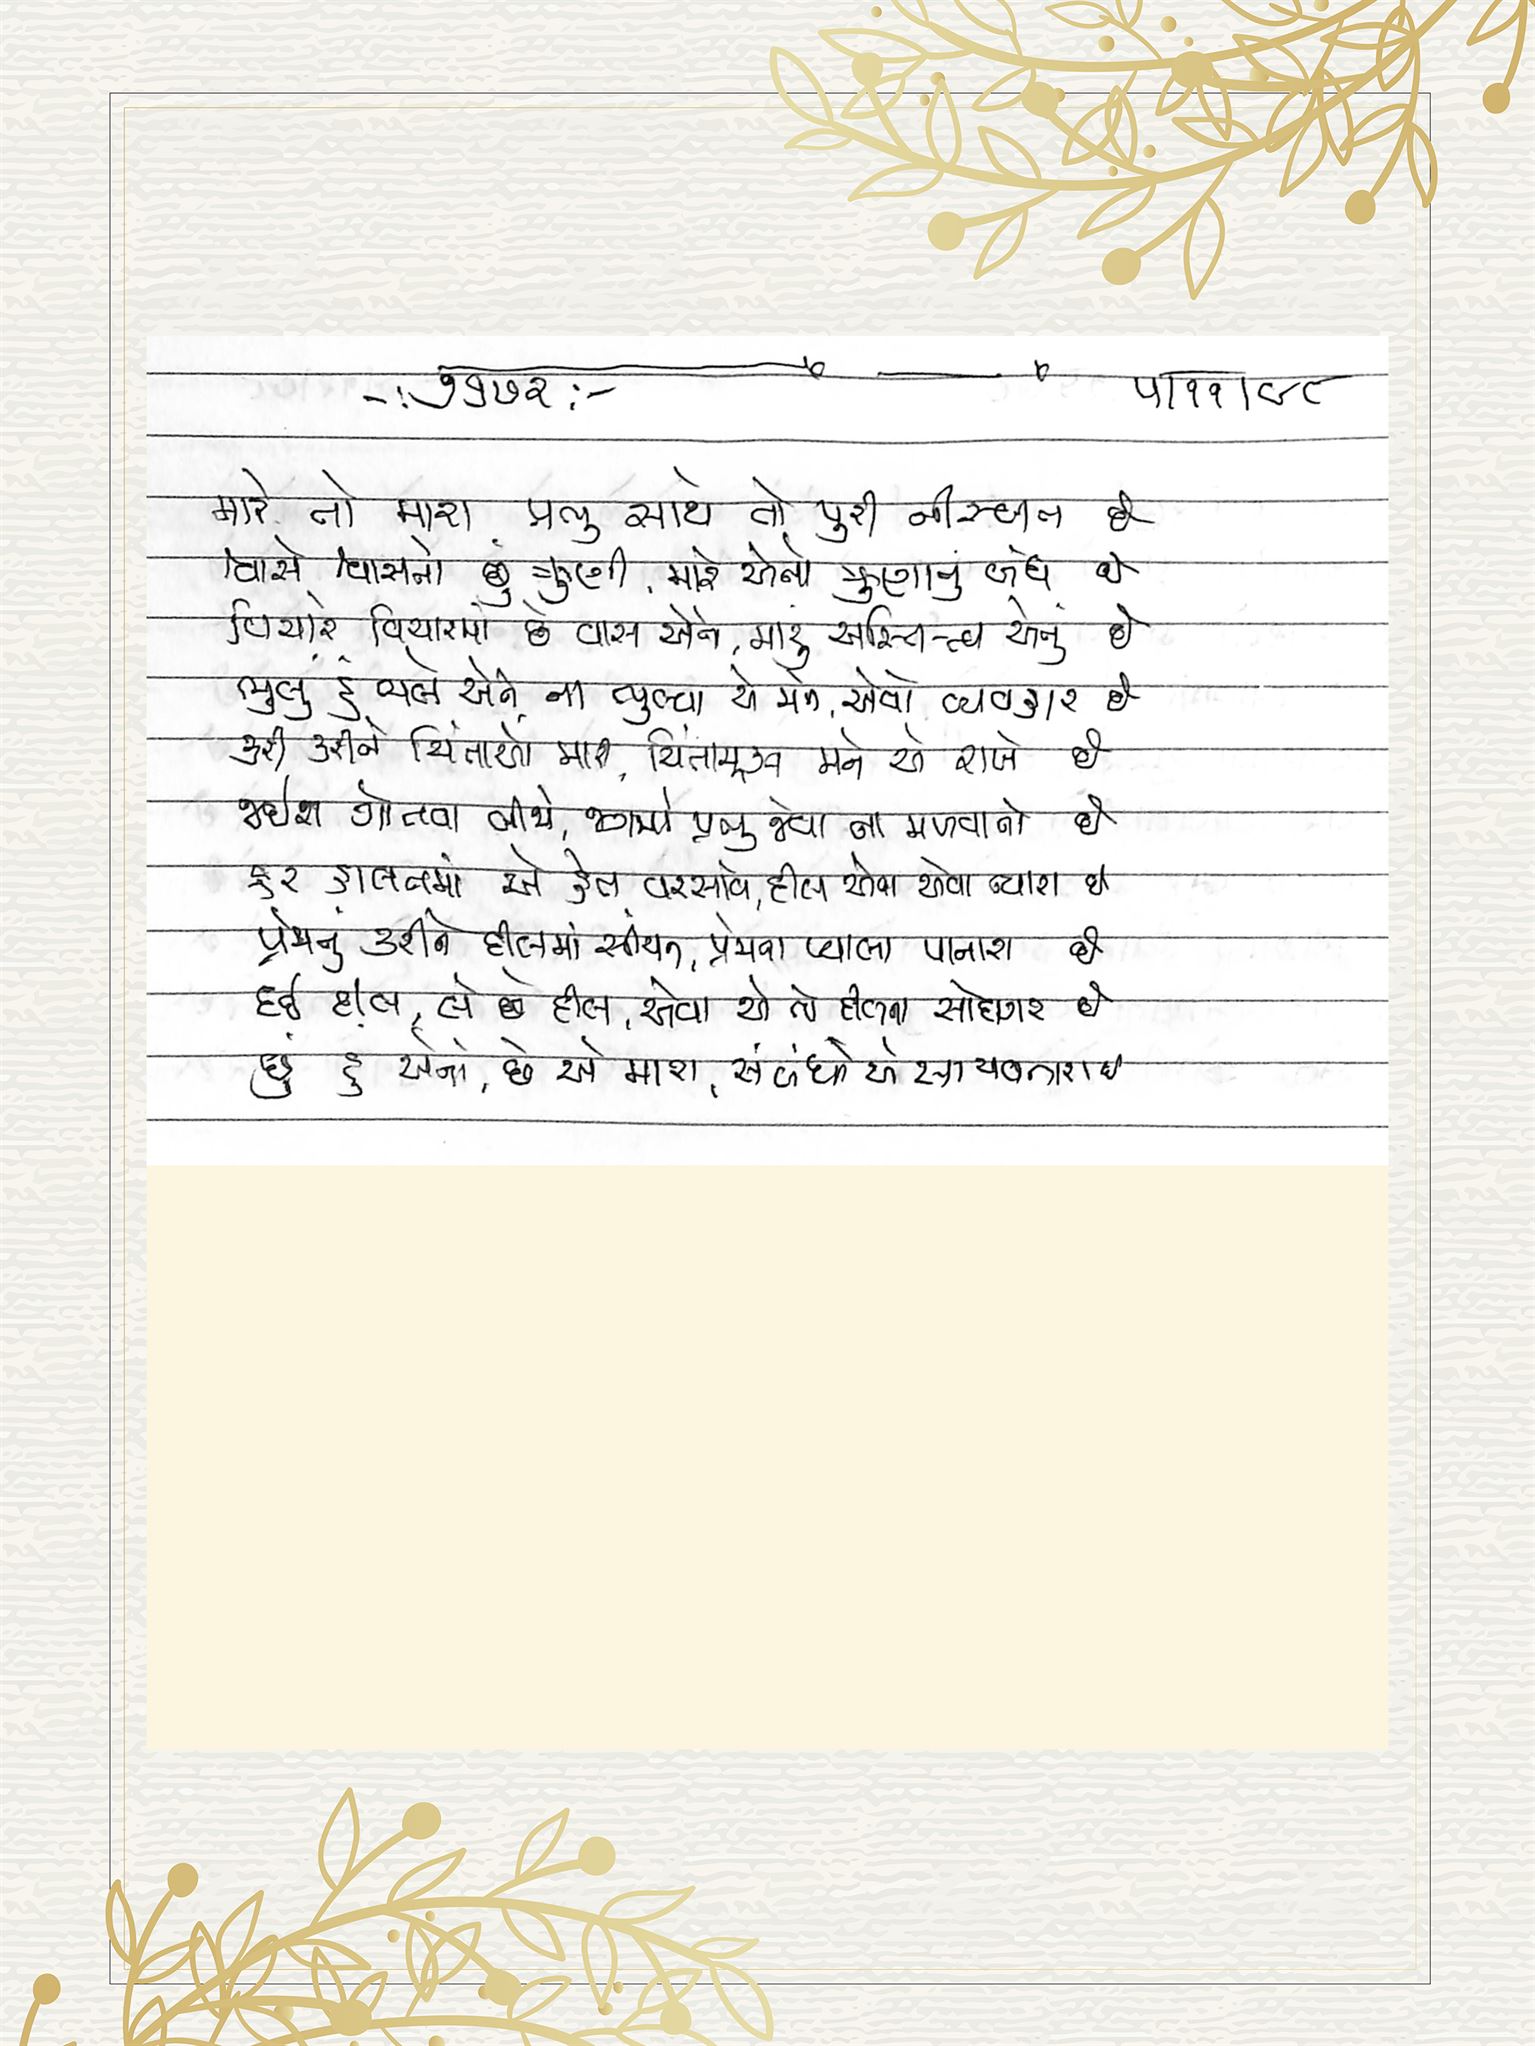 -: ૭૧૭૨ :- ૫/૧૧/૯૮
મારે તો મારા પ્રભુ સાથે તો પુરી નીસ્બત છે
શ્વાસે શ્વાસનો છું ઋણી, મારે એનો ઋણાનું બંધ છે
વિચારે વિચારમાં છે વાસ એને, મારું અસ્તિત્ત્વ એનું છે
ભુલું હું ભલે એને, ના ભુલ્યા એ મને, એવો વ્યવહાર છે
કરી કરીને ચિંતાઓ મારી, ચિંતામૂક્ત મને એ રાખે છે
ગોતવા બીજે, પ્રભુ જેવા ના મળવાનો છે
હર હાલતમાં એ હેત વરસાવે, દીલ એવા એવા પ્યારા છે
પ્રેમનું કરીને દીલમાં સીંચન, પ્રેમના પ્યાલા પાનારા છે
દર્દ દીલ, લે છે દીલ, એવા એ તો દીલના સોદાગર છે
છું હું એનો, છે એ મારા, સંબંધો એ સાચવનારા છે